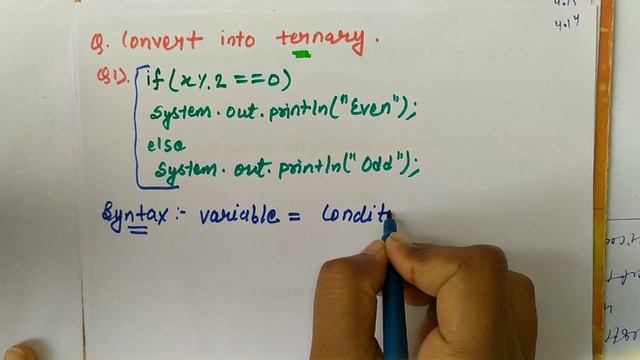 4.14
Q. Convert into ternary.
Q1). if (x % 2 == 0)
System.out.println("Even");
else
System.out.println("Odd");
Syntax :- variable = Condit